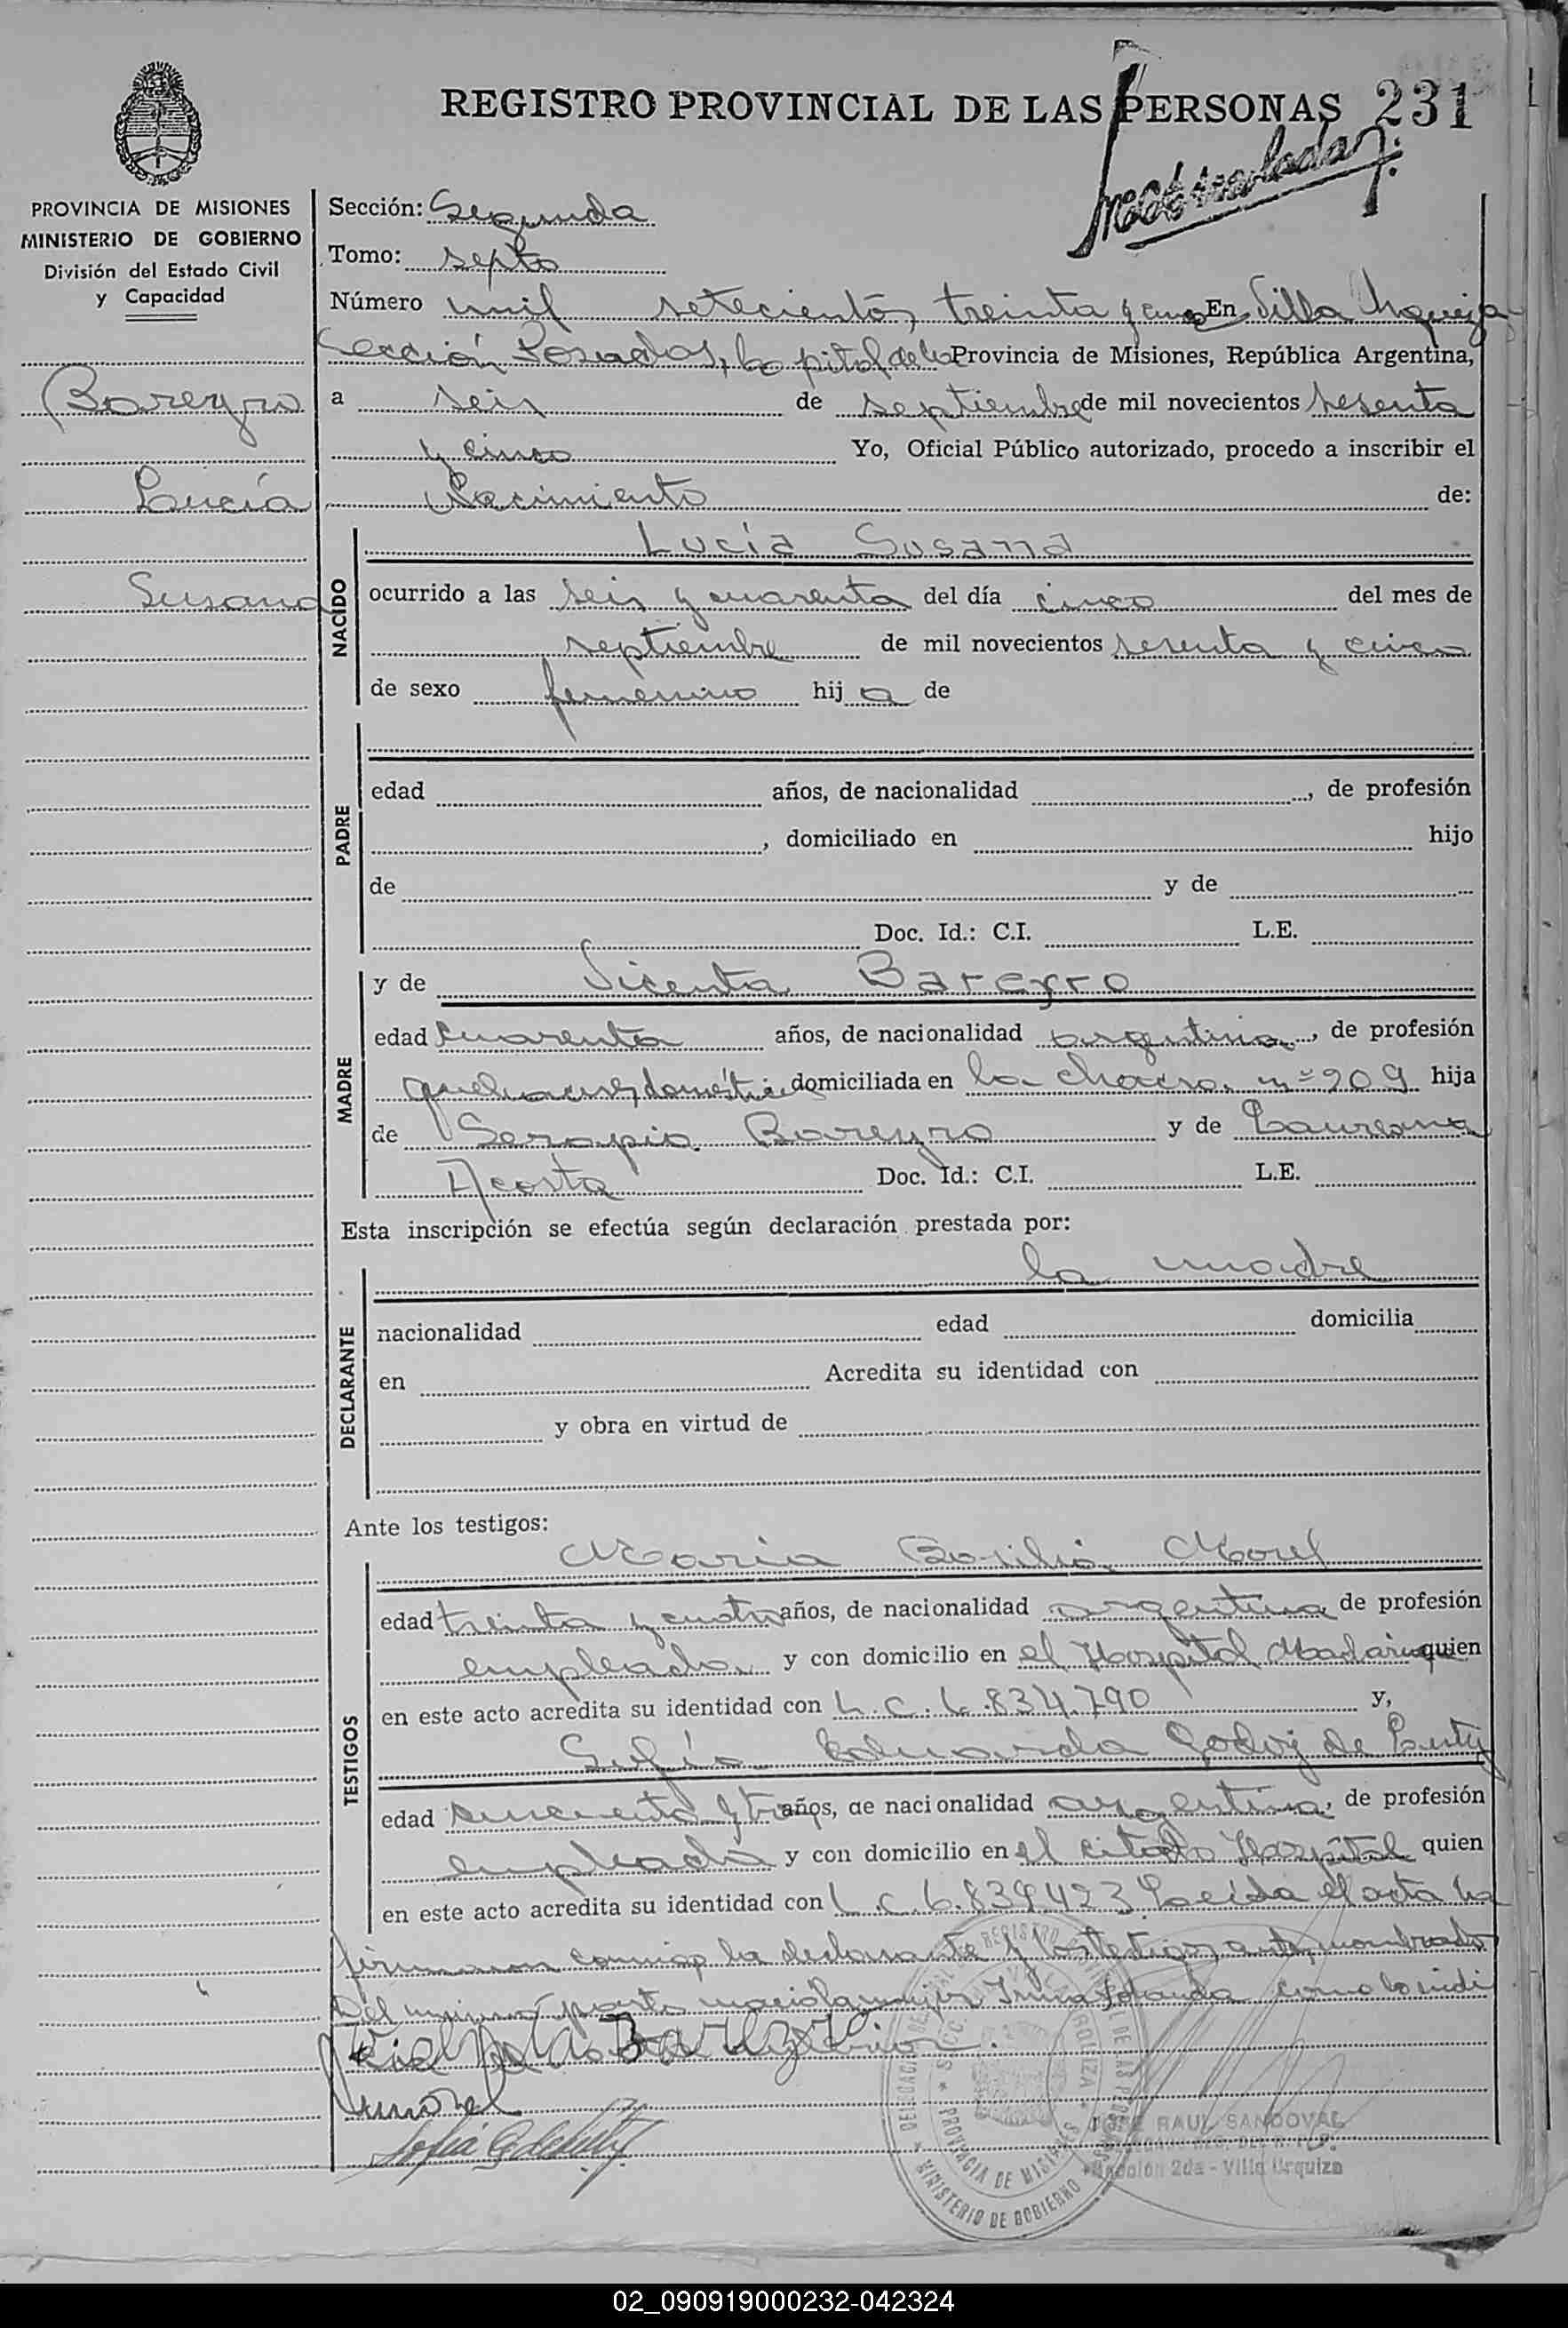 REGISTRO PROVINCIAL DE LAS PERSONAS 231
PROVINCIA DE MISIONES
MINISTERIO DE GOBIERNO
División del Estado Civil
y Capacidad
Bareyro
Lucía
Susana
Sección: Segunda
Tomo: septo
Número mil setecientos treinta y cinco En Villa Urquiza
Sección Posadas, Capital de la Provincia de Misiones, República Argentina,
a seis de septiembre de mil novecientos sesenta
y cinco Yo, Oficial Público autorizado, procedo a inscribir el
Nacimiento de:
NACIDO
Lucía Susana
ocurrido a las seis y cuarenta del día cinco del mes de
septiembre de mil novecientos sesenta y cinco
de sexo femenino hij a de
PADRE
edad años, de nacionalidad , de profesión
, domiciliado en hijo
de y de
Doc. Id.: C.I. L.E.
MADRE
y de Vicenta Bareyro
edad cuarenta años, de nacionalidad argentina, de profesión
quehaceres domésticos domiciliada en la chacra nº 209 hija
de Serapio Bareyro y de Laureana
Acosta Doc. Id.: C.I. L.E.
Esta inscripción se efectúa según declaración prestada por:
DECLARANTE
la madre
nacionalidad edad domicilia
en Acredita su identidad con
y obra en virtud de
Ante los testigos:
TESTIGOS
María Basilia Morel
edad treinta y cuatro años, de nacionalidad argentina de profesión
empleada y con domicilio en el Hospital Madariaga quien
en este acto acredita su identidad con L.C. 6.834.790 y,
Sofía Eduarda Godoy de
edad cincuenta y tres años, de nacionalidad argentina, de profesión
empleada y con domicilio en el citado Hospital quien
en este acto acredita su identidad con L.C. 6.839.423 Leída el acta la
firmaron conmigo la declarante y los testigos antes nombrados
Del mismo parto nació la mujer Irma Yolanda como lo indi
Bareyro
Morel
Sofía G de
DELEGACIÓN
MINISTERIO DE GOBIERNO
PROVINCIA DE MISIONES
JOSE RAUL SANDOVAL
Sección 2da - Villa Urquiza
02_090919000232-042324